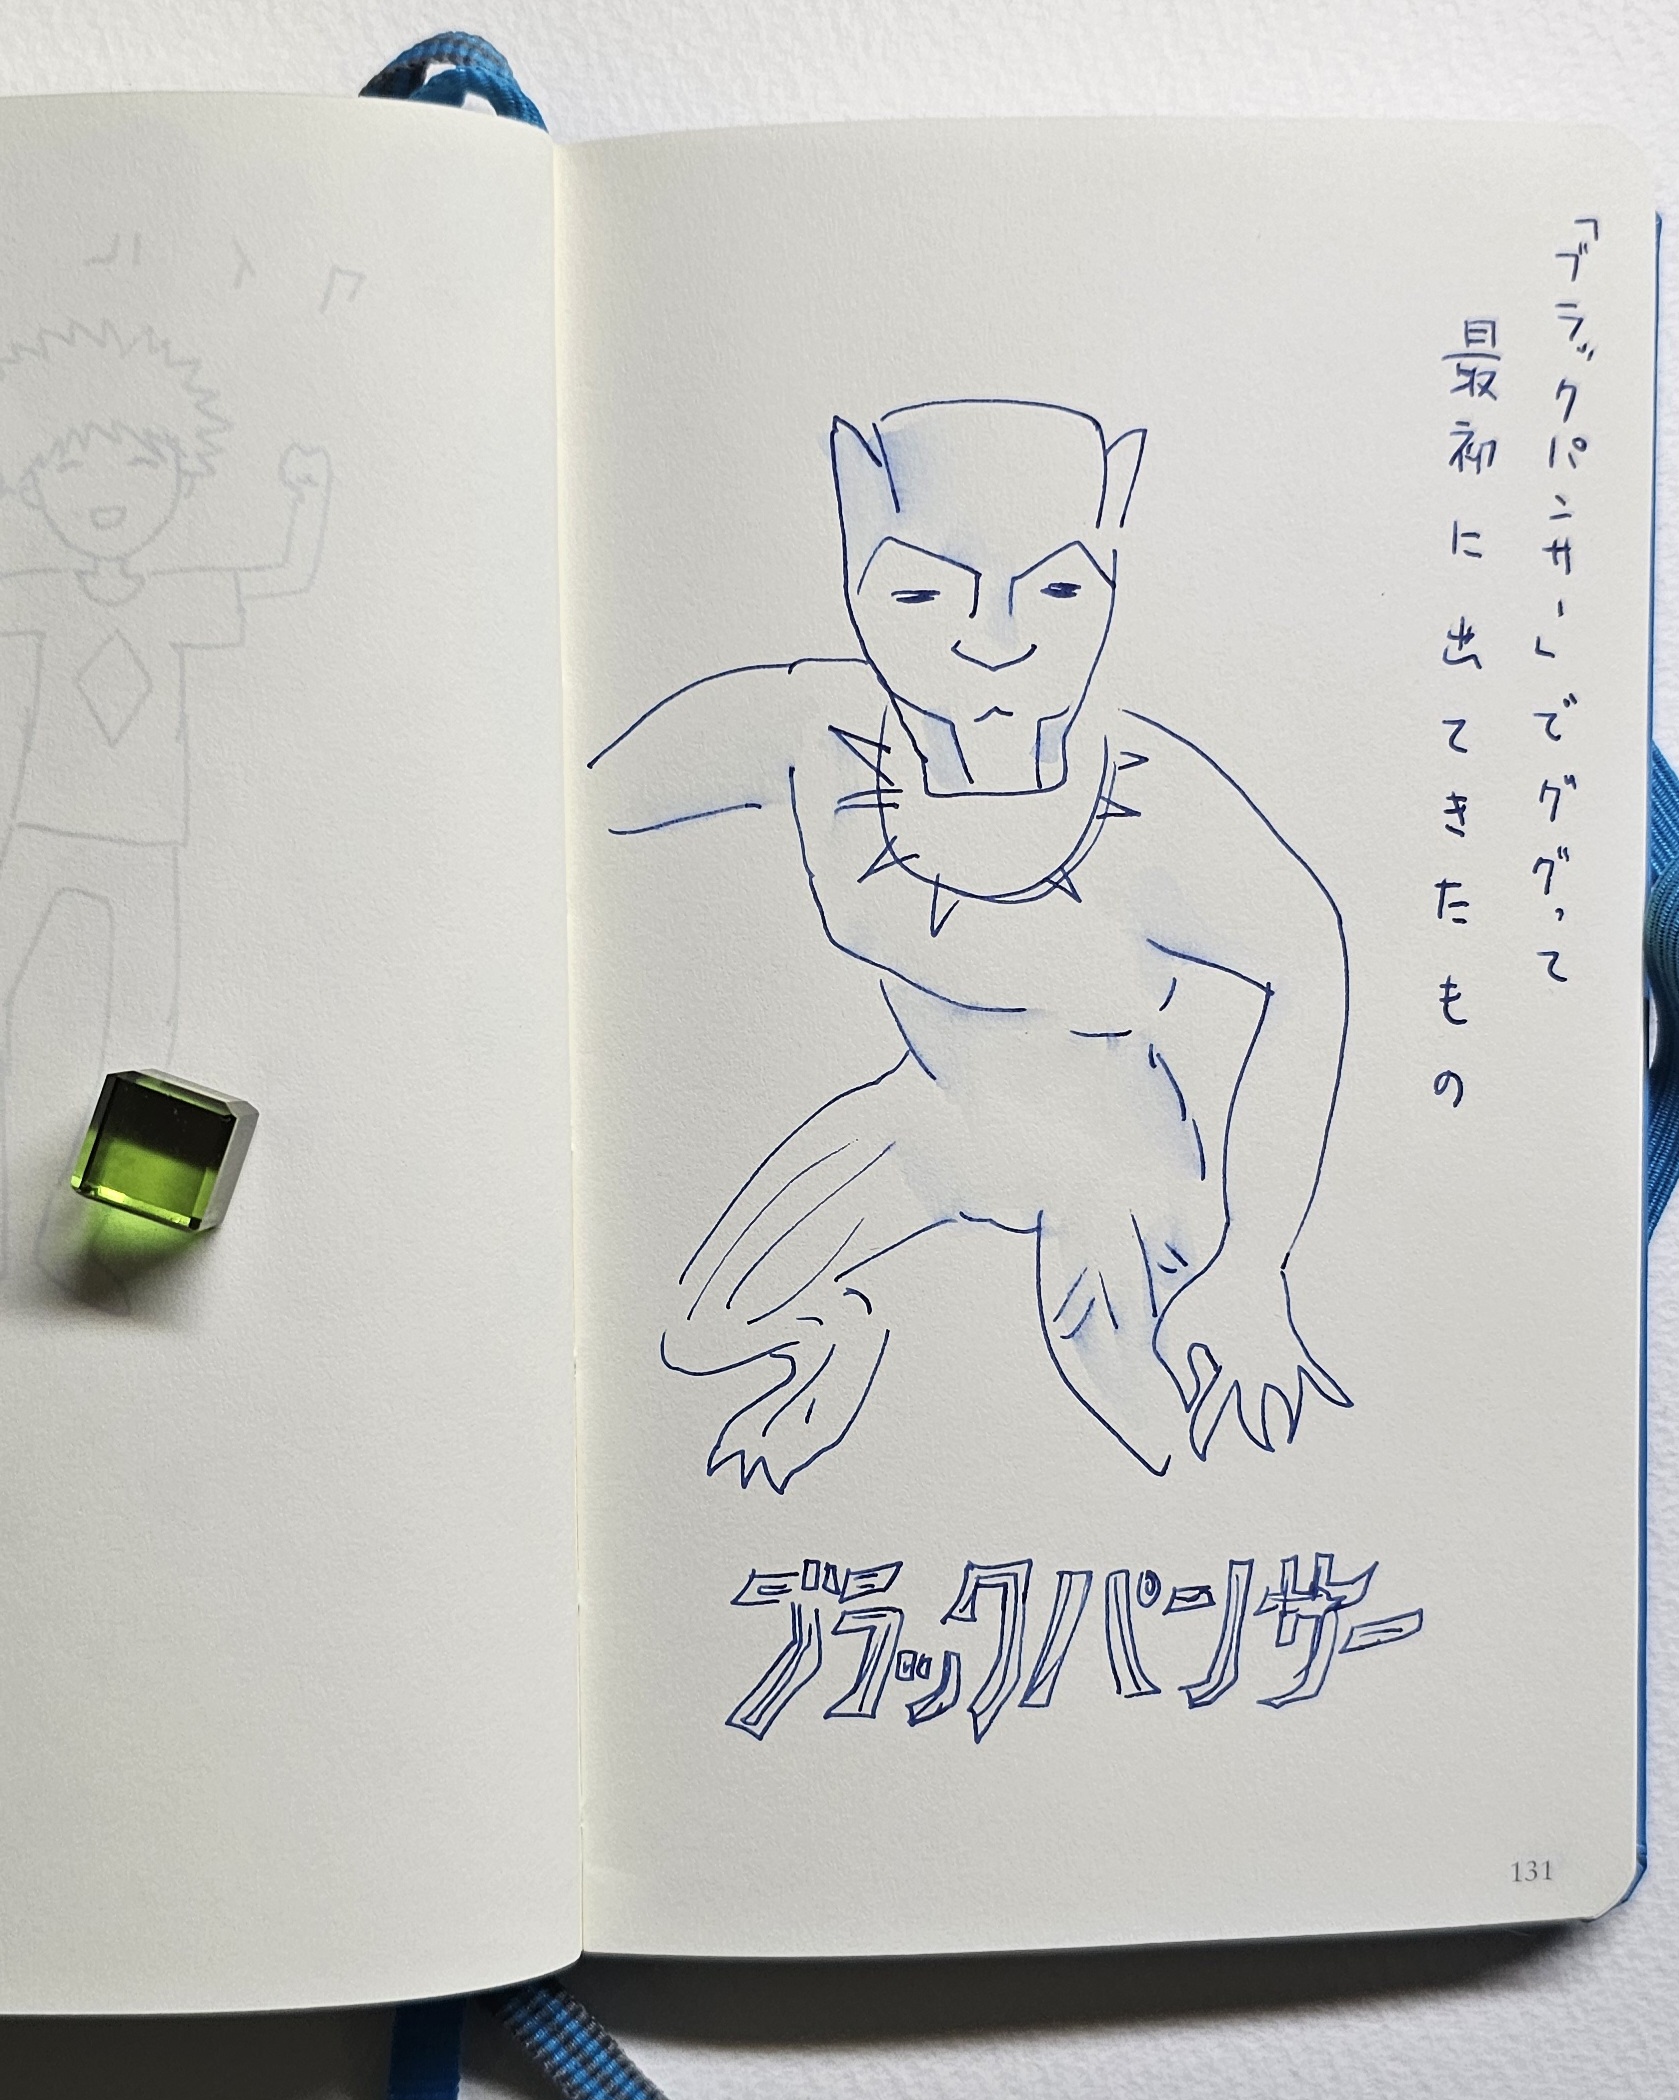 「ブラックパンサー」でググって
最初に出てきたもの
ブラックパンサー
131